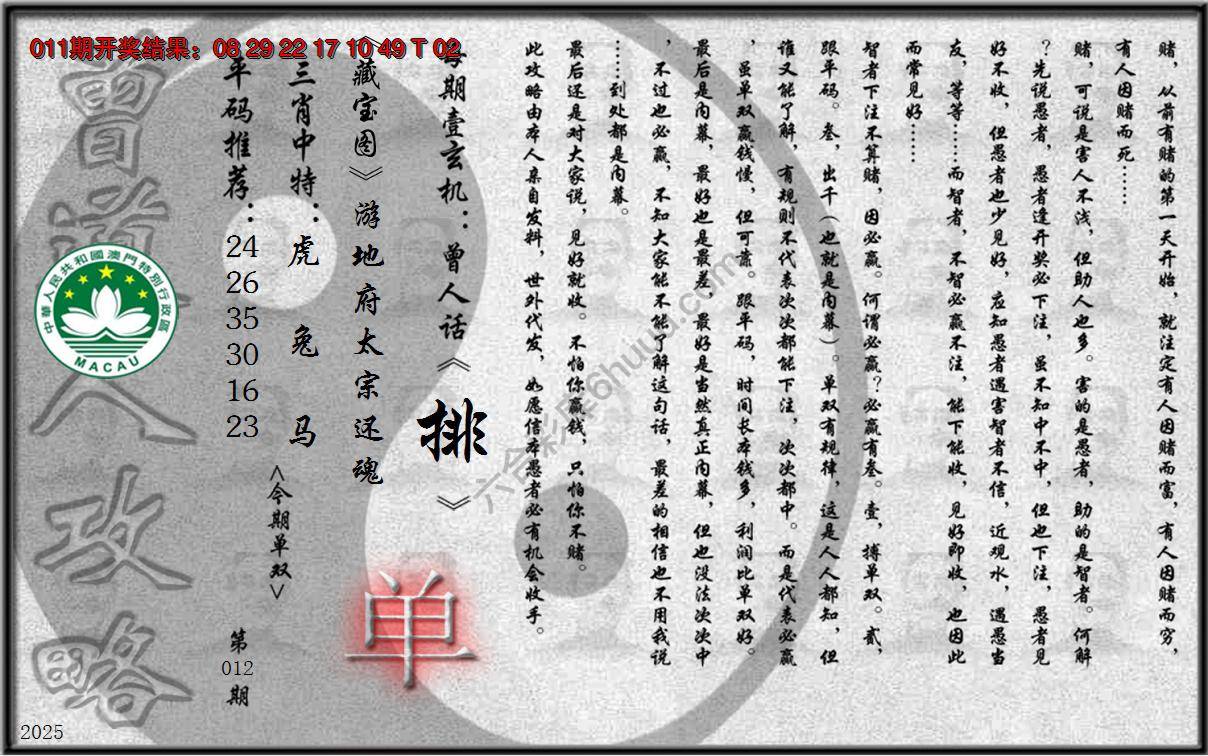 011期开奖结果：08 29 22 17 10 49 T 02
赌，从前有赌的第一天开始，就注定有人因赌而富，有人因赌而穷，
有人因赌而死……
赌，可说是害人不浅，但助人也多。害的是愚者，助的是智者。何解
？先说愚者，愚者逢开奖必下注，虽不知中不中，但也下注，愚者见
好不收，但愚者也少见好，应知愚者遇害智者不信，近观水，遇愚当
友，等等……而智者，不智必赢不注，能下能收，见好即收，也因此
而常见好……
智者下注不算赌，因必赢。何谓必赢？必赢有叁。壹，搏单双。贰，
跟平码。叁，出千（也就是内幕）。单双有规律，这是人人都知，但
谁又能了解，有规则不代表次次都能下注，次次都中。而是代表必赢
，虽单双赢钱慢，但可靠。跟平码，时间长本钱多，利润比单双好。
最后是内幕，最好也是最差，最好是当然真正内幕，但也没法次次中
，不过也必赢，不知大家能不能了解这句话，最差的相信也不用我说
……到处都是内幕。
最后还是对大家说，见好就收。不怕你赢钱，只怕你不赌。
此攻略由本人亲自发料，世外代发，如愿信本愚者必有机会收手。
每期壹玄机：曾人话《排》
《藏宝图》游地府太宗还魂
三肖中特：虎 兔 马
平码推荐：24 26 35 30 16 23
<今期单双>
单
第012期
曾道人攻略
中華人民共和國澳門特別行政區
MACAU
六合彩库6huuu.com
2025